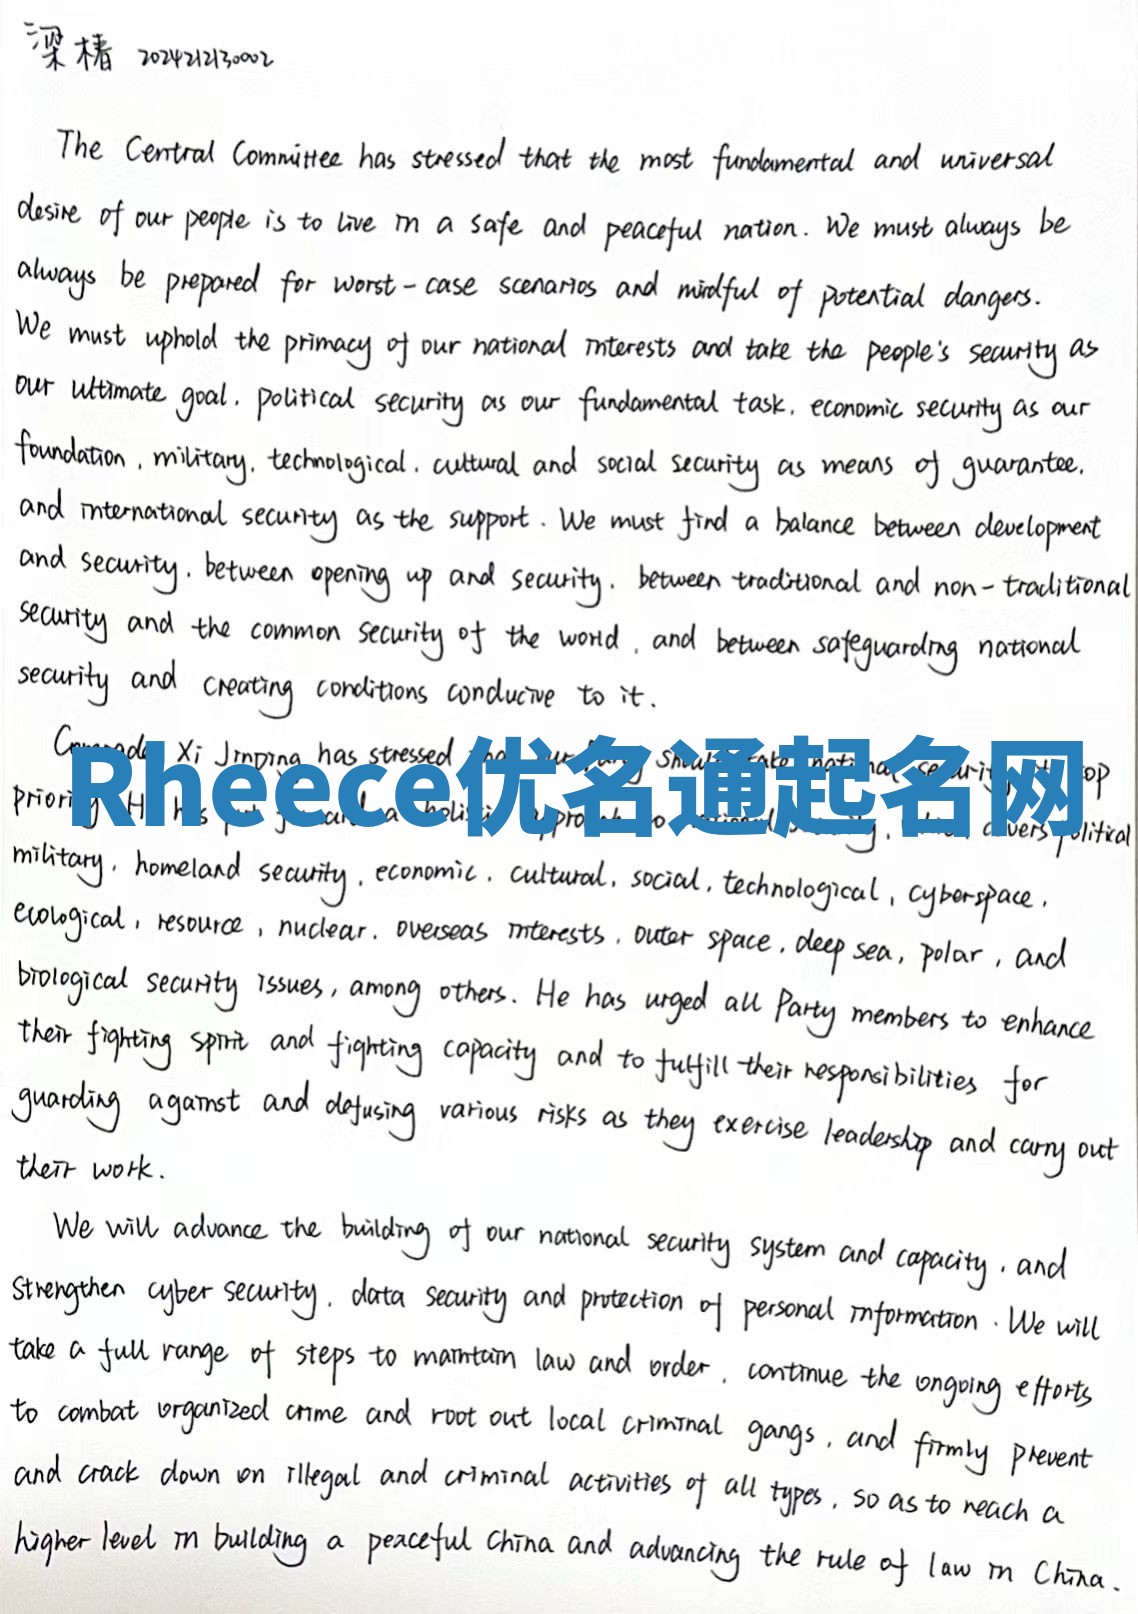 梁椿 2024212130002
The Central Committee has stressed that the most fundamental and universal
desire of our people is to live in a safe and peaceful nation. We must always be
always be prepared for worst-case scenarios and mindful of potential dangers.
We must uphold the primacy of our national interests and take the people's security as
our ultimate goal, political security as our fundamental task, economic security as our
foundation, military, technological, cultural and social security as means of guarantee,
and international security as the support. We must find a balance between development
and security, between opening up and security, between traditional and non-traditional
security and the common security of the world, and between safeguarding national
security and creating conditions conducive to it.
Xi Jinping has stressed
Rheece优名通起名网
political
military, homeland security, economic, cultural, social, technological, cyberspace,
ecological, resource, nuclear, overseas interests, outer space, deep sea, polar, and
biological security issues, among others. He has urged all Party members to enhance
their fighting spirit and fighting capacity and to fulfill their responsibilities for
guarding against and defusing various risks as they exercise leadership and carry out
their work.
We will advance the building of our national security system and capacity, and
strengthen cyber security, data security and protection of personal information. We will
take a full range of steps to maintain law and order, continue the ongoing efforts
to combat organized crime and root out local criminal gangs, and firmly prevent
and crack down on illegal and criminal activities of all types, so as to reach a
higher level in building a peaceful China and advancing the rule of law in China.